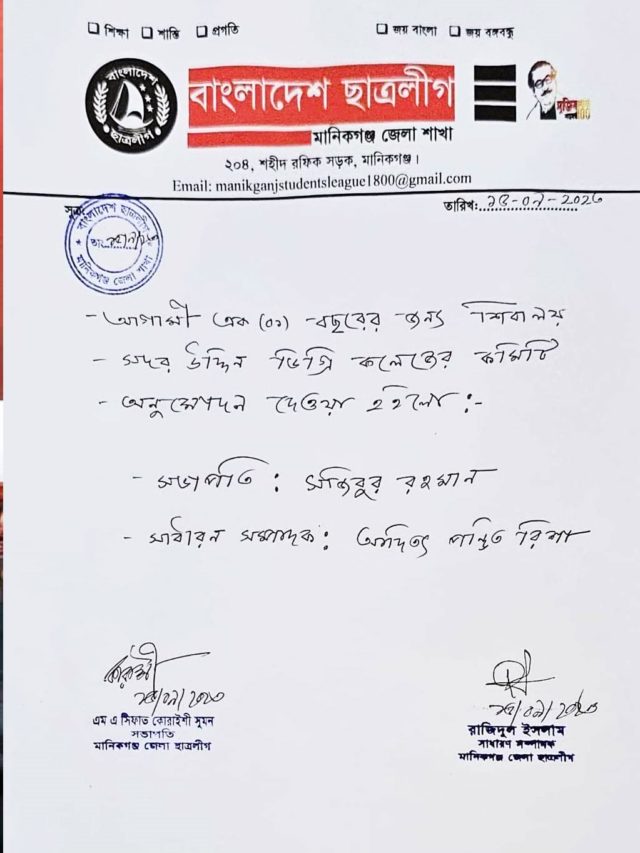 শিক্ষা শান্তি প্রগতি
জয় বাংলা জয় বঙ্গবন্ধু
বাংলাদেশ ছাত্রলীগ
বাংলাদেশ ছাত্রলীগ
মানিকগঞ্জ জেলা শাখা
২০৪, শহীদ রফিক সড়ক, মানিকগঞ্জ।
Email: manikganjstudentsleague1800@gmail.com
সূত্র
তারিখ:
বাংলাদেশ ছাত্রলীগ
মানিকগঞ্জ জেলা শাখা
- আগামী এক (০১) বছরের জন্য শিবালয়
- সদর উদ্দিন ডিগ্রি কলেজের কমিটি
- অনুমোদন দেওয়া হইলো :-
- সভাপতি : মজিবুর রহমান
- সাধারন সম্পাদক : পন্ডিত
এম এ সিফাত কোরাইশী সুমন
সভাপতি
মানিকগঞ্জ জেলা ছাত্রলীগ
রাজিদুল ইসলাম
সাধারণ সম্পাদক
মানিকগঞ্জ জেলা ছাত্রলীগ